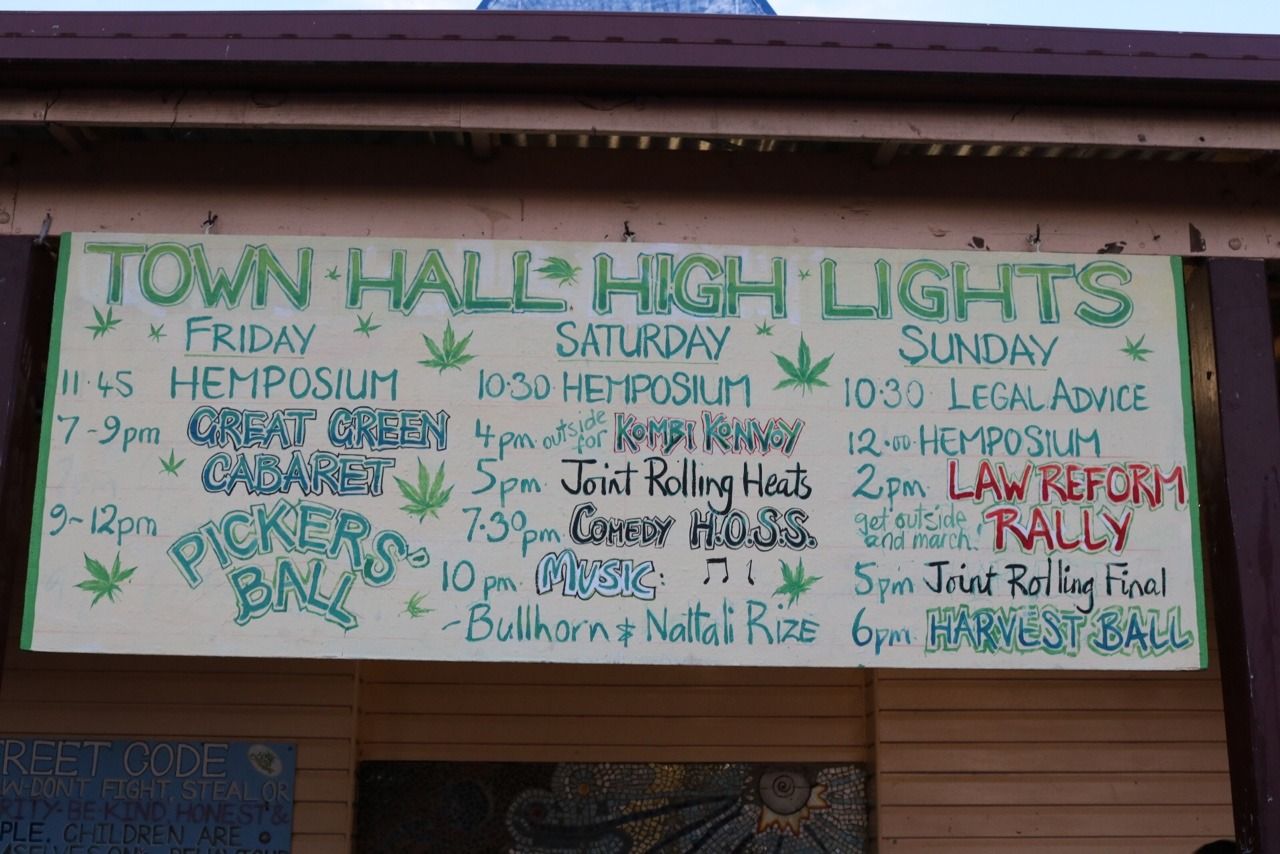 TOWN HALL HIGH LIGHTS
FRIDAY
11.45 HEMPOSIUM
7-9pm GREAT GREEN
CABARET
9-12pm PICKERS'
BALL
SATURDAY
10.30 HEMPOSIUM
4pm outside for KOMBI KONVOY
5pm Joint Rolling Heats
7.30pm COMEDY H.O.S.S.
10pm MUSIC:
-Bullhorn & Nattali Rize
SUNDAY
10.30 LEGAL ADVICE
12.00 HEMPOSIUM
2pm LAW REFORM
get outside and march! RALLY
5pm Joint Rolling Final
6pm HARVEST BALL
REET CODE
W-DONT FIGHT, STEAL OR
RITY-BE KIND, HONEST &
PLE. CHILDREN ARE